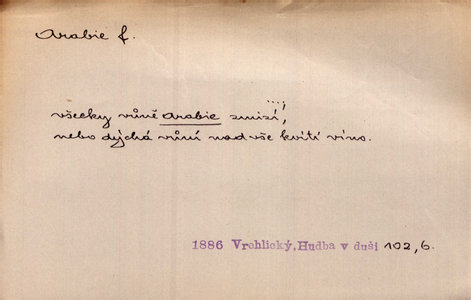 Arabie f.
všecky vůně Arabie zmizí,
nebo dýchá vůní nad vše kvítí víno.
1886 Vrchlický, Hudba v duši 102,6.